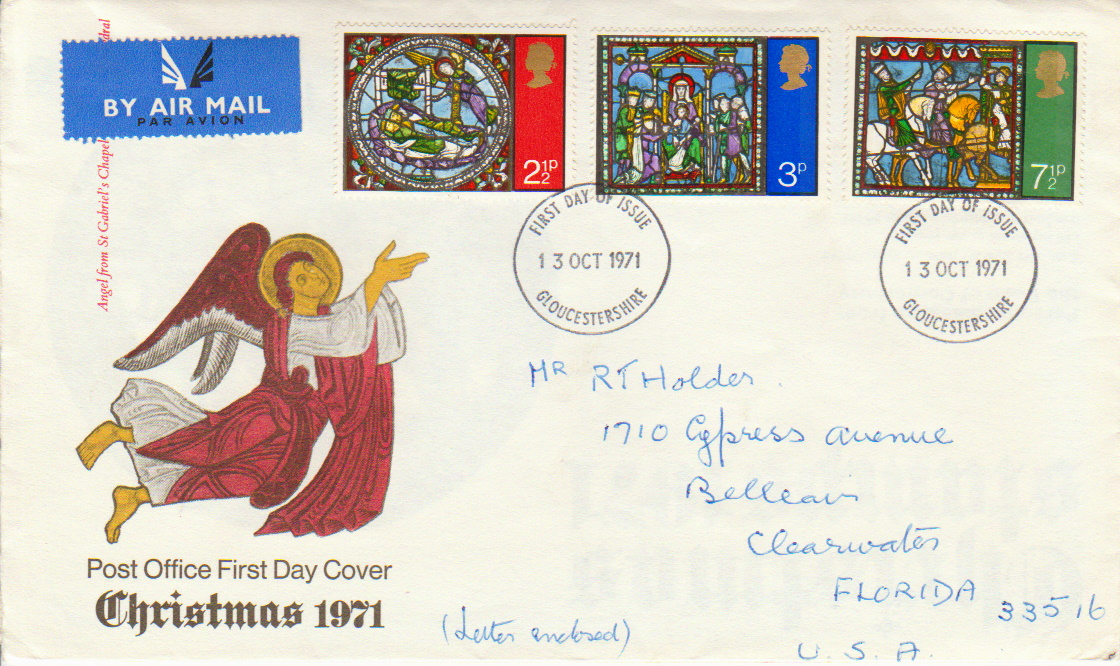 BY AIR MAIL
PAR AVION
Angel from St Gabriel's Chapel
dral
2½p
3p
7½p
FIRST DAY OF ISSUE
13 OCT 1971
GLOUCESTERSHIRE
FIRST DAY OF ISSUE
13 OCT 1971
GLOUCESTERSHIRE
MR RT Holder.
1710 Cypress avenue
Belleair
Clearwater
FLORIDA 33516
U. S. A.
(Letter enclosed)
Post Office First Day Cover
Christmas 1971